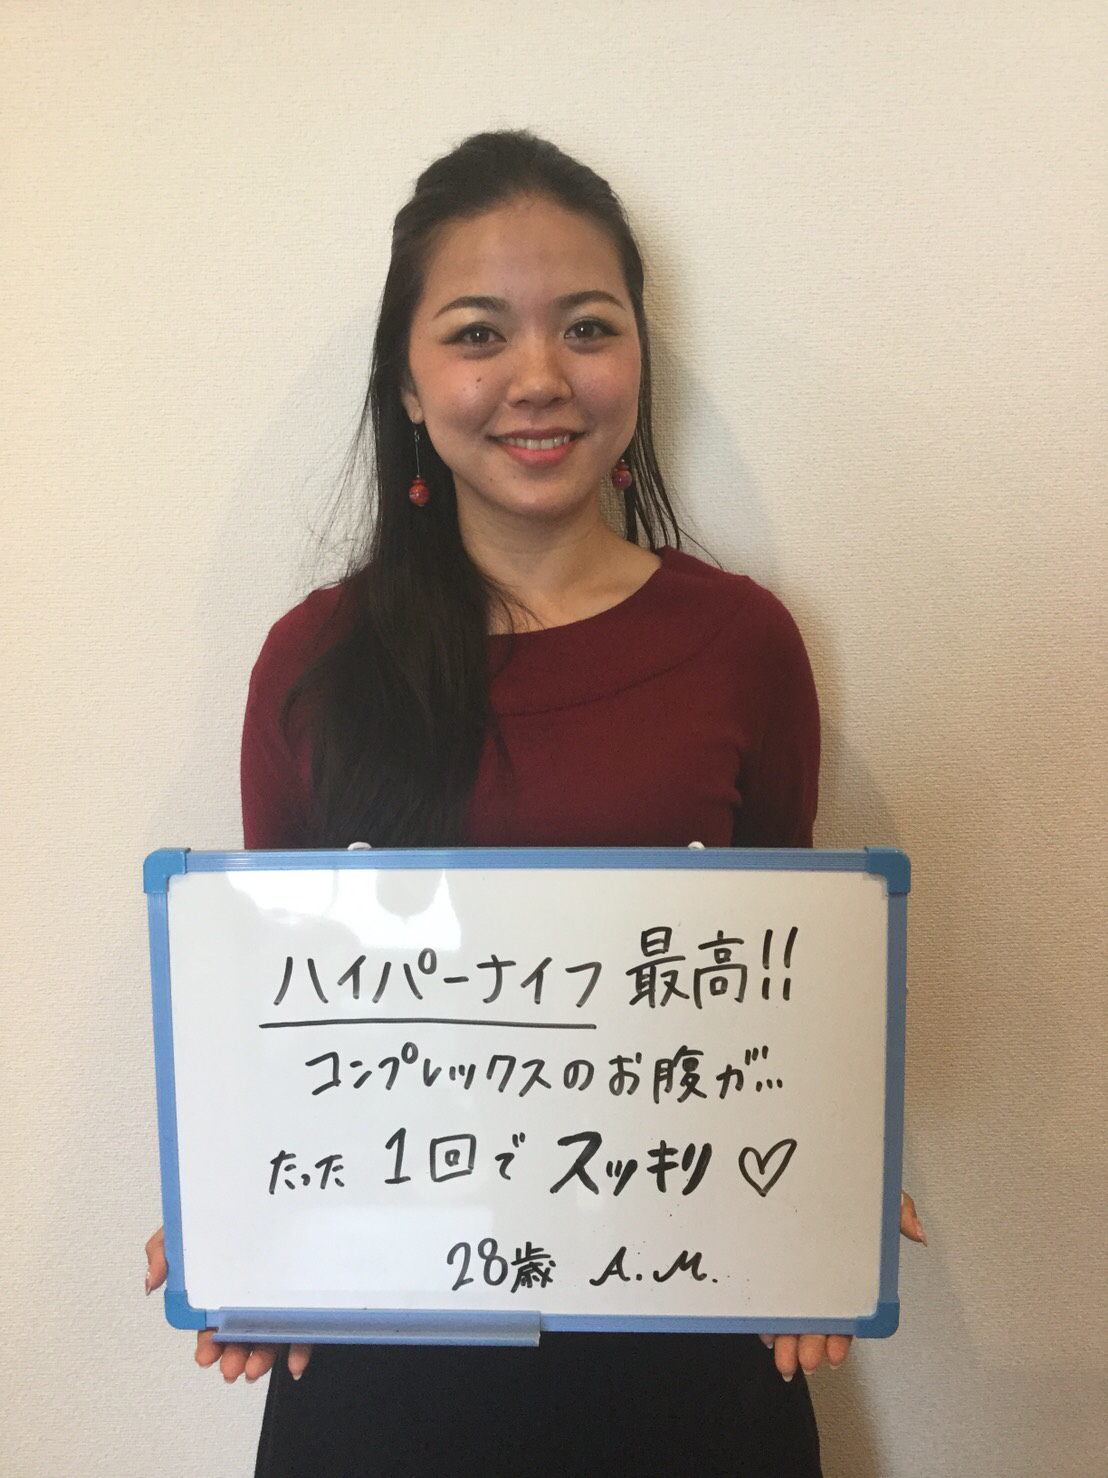 ハイパーナイフ 最高!!
コンプレックスのお腹が...
たった 1回で スッキリ♡
28歳 A.M.